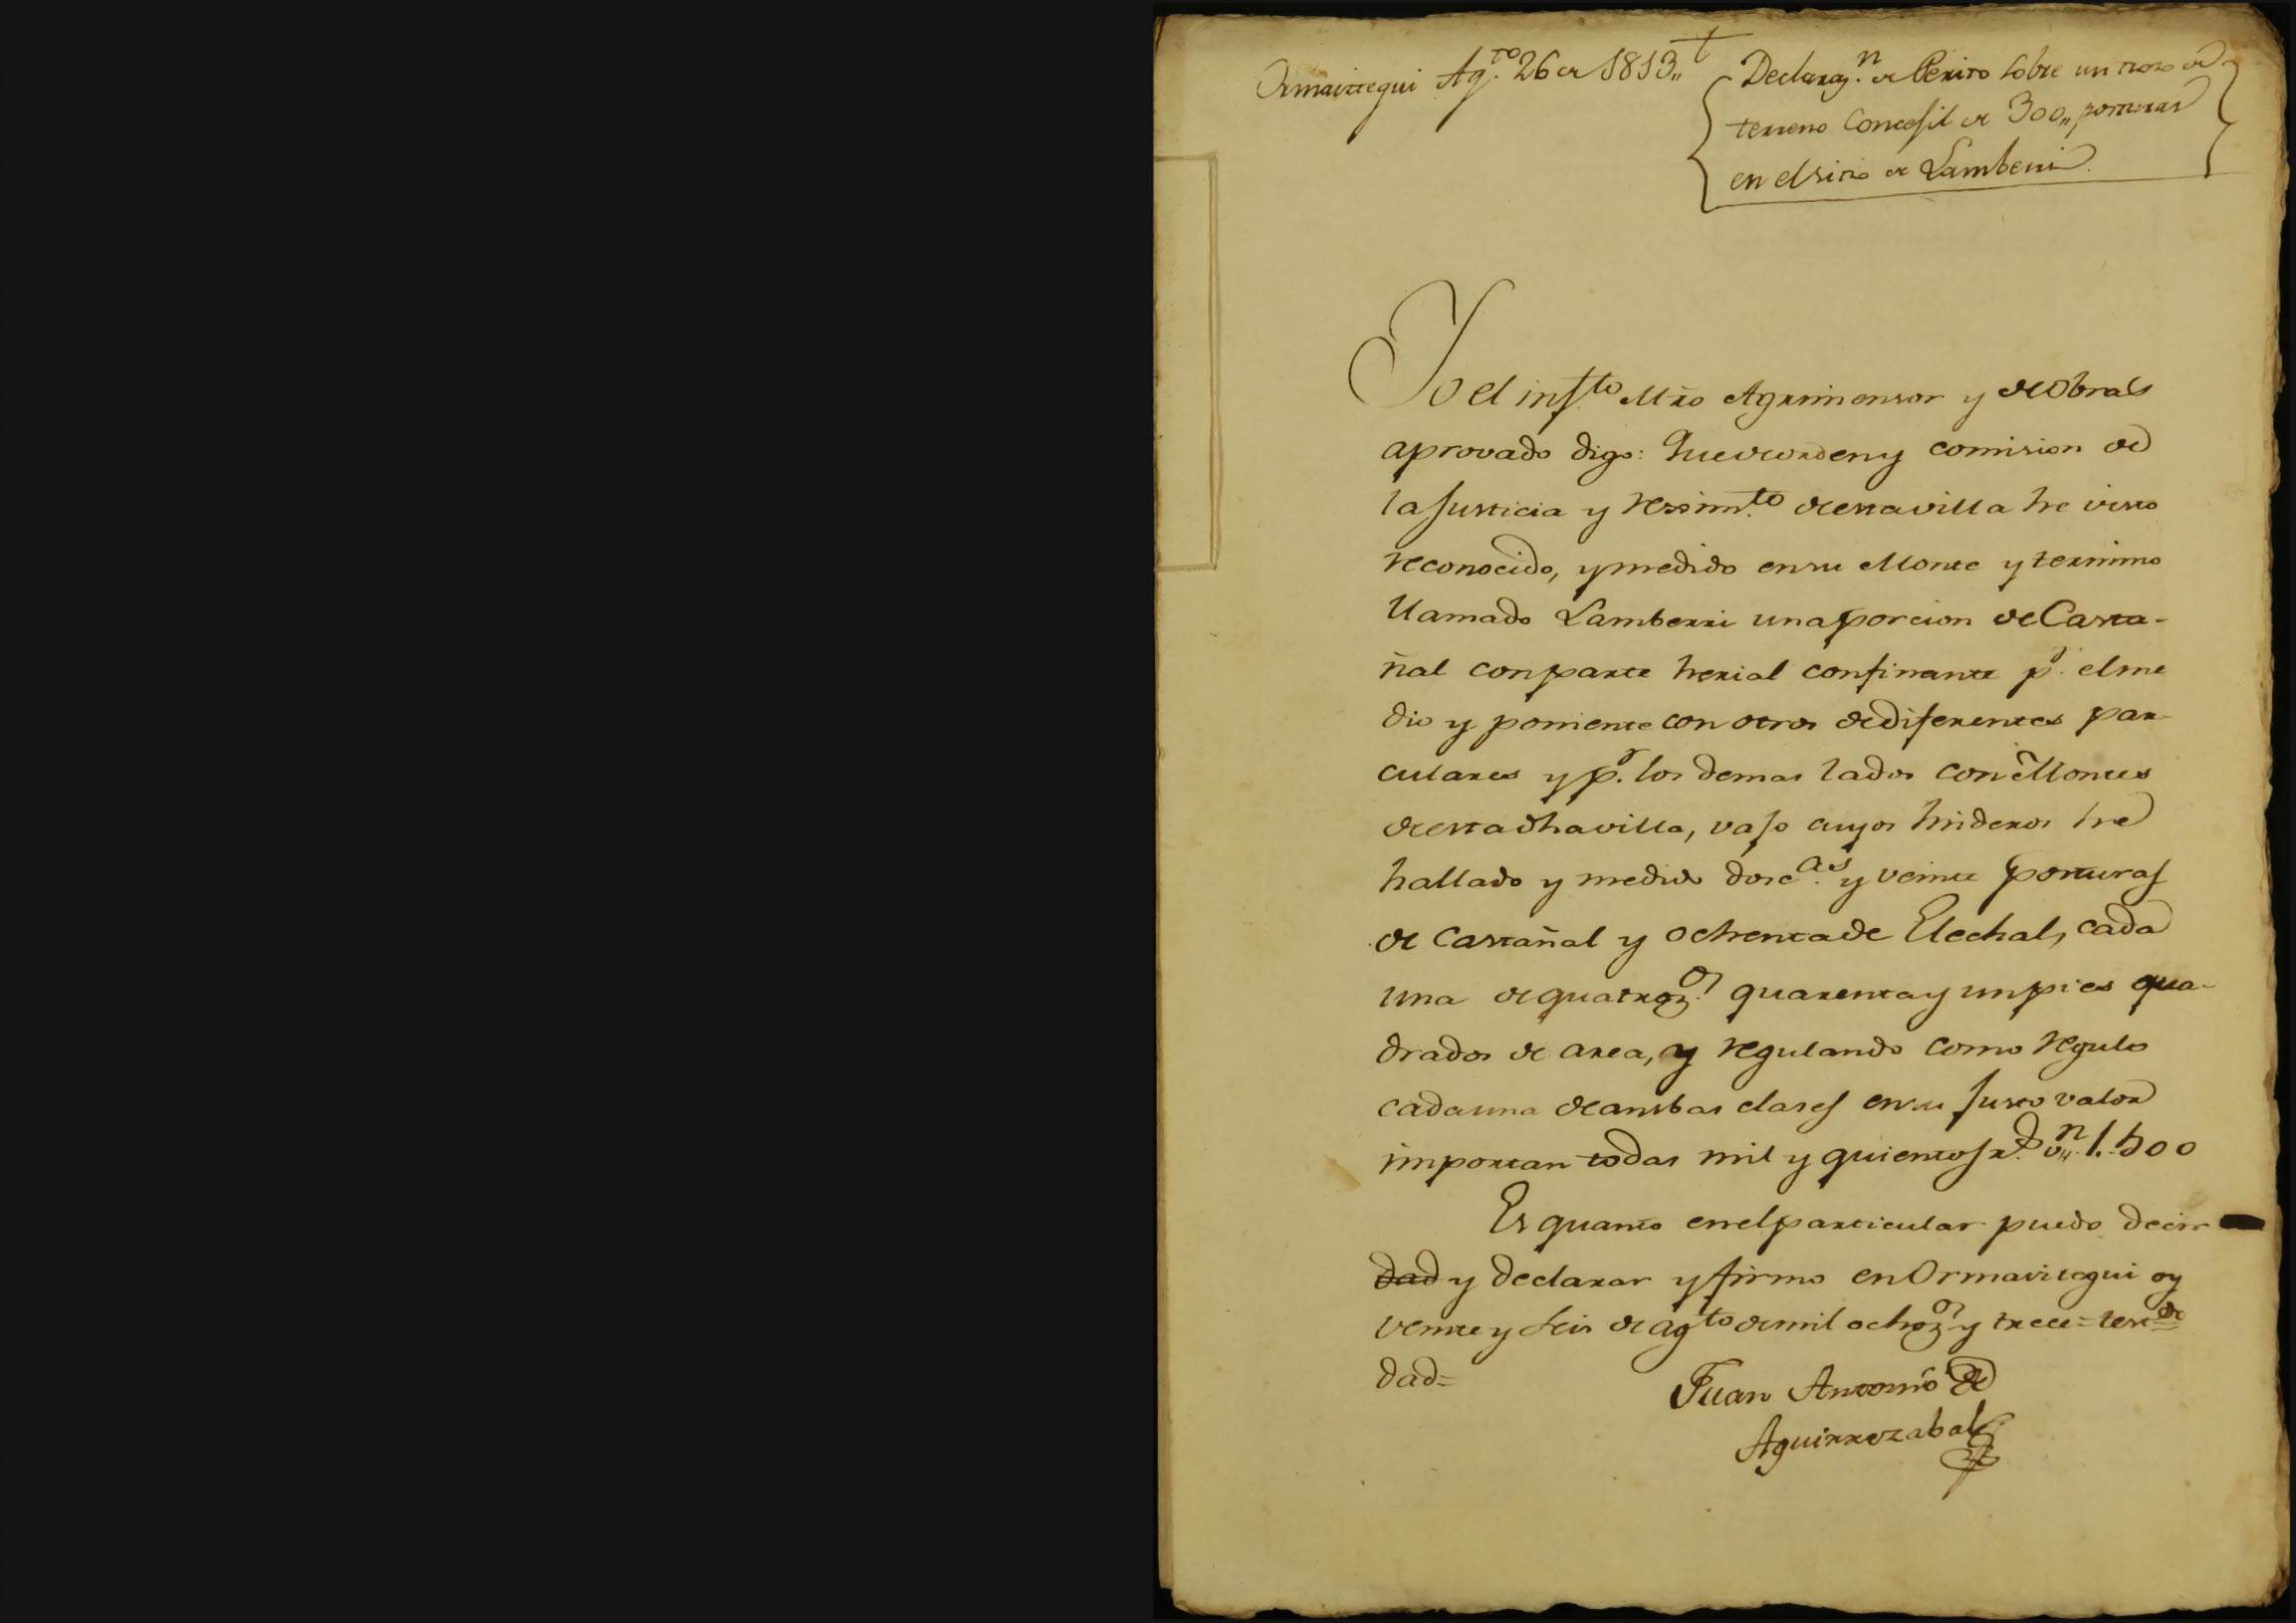 Ormaiztegui Ag.to 26 de 1813,,
Declaraz.n de Perito sobre un trozo de
terreno Concejil de 300,, posturas
en el sitio de Lamberri.
Yo el infto Mro Agrimensor y de Obras
aprovado digo: Que de orden y comision de
la Justicia y reximto de esta villa he visto
reconocido, y medido en su Monte y termino
llamado Lamberri una porcion de Casta-
ñal con parte herial confinante pr. el me
dio y poniente con otros de diferentes par-
culares y pr. los demas lados con Montes
de esta dha villa, vajo cuyos linderos he
hallado y medido dosc.as y veinte posturas
de Castañal y ochenta de Elechal, cada
una de quatroz.os quarenta y un pies qua-
drados de area, y regulando como regulo
cada una de ambas clases en su Justo valor
importan todas mil y quientos r.s v.n 1.500
Es quanto en el particular puedo decir
dad y declarar y firmo en Ormaiztegui oy
veinte y seis de agto de mil ochoz.os y trece = test.de
dad=
Juan Antonio de
Aguirrezabal